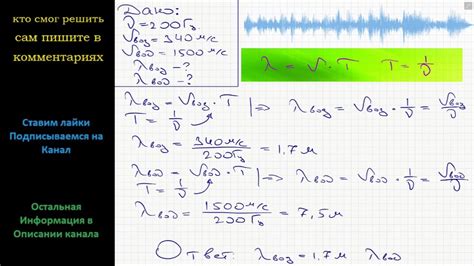 кто смог решить
сам пишите в
комментариях
Ставим лайки
Подписываемся на
Канал
Остальная
Информация в
Описании канала
Дано:
ν = 200 Гц
υвоз = 340 м/с
υвод = 1500 м/с
λвоз - ?
λвод - ?
λ = υ · T    T = 1/ν
λвоз = υвоз · T |=> λвоз = υвоз · 1/ν = υвоз/ν
T = 1/ν
λвоз = 340 м/с / 200 Гц = 1,7 м
λвод = υвод · T |=> λвод = υвод · 1/ν = υвод/ν
T = 1/ν
λвод = 1500 м/с / 200 Гц = 7,5 м
Ответ: λвоз = 1,7 м λвод